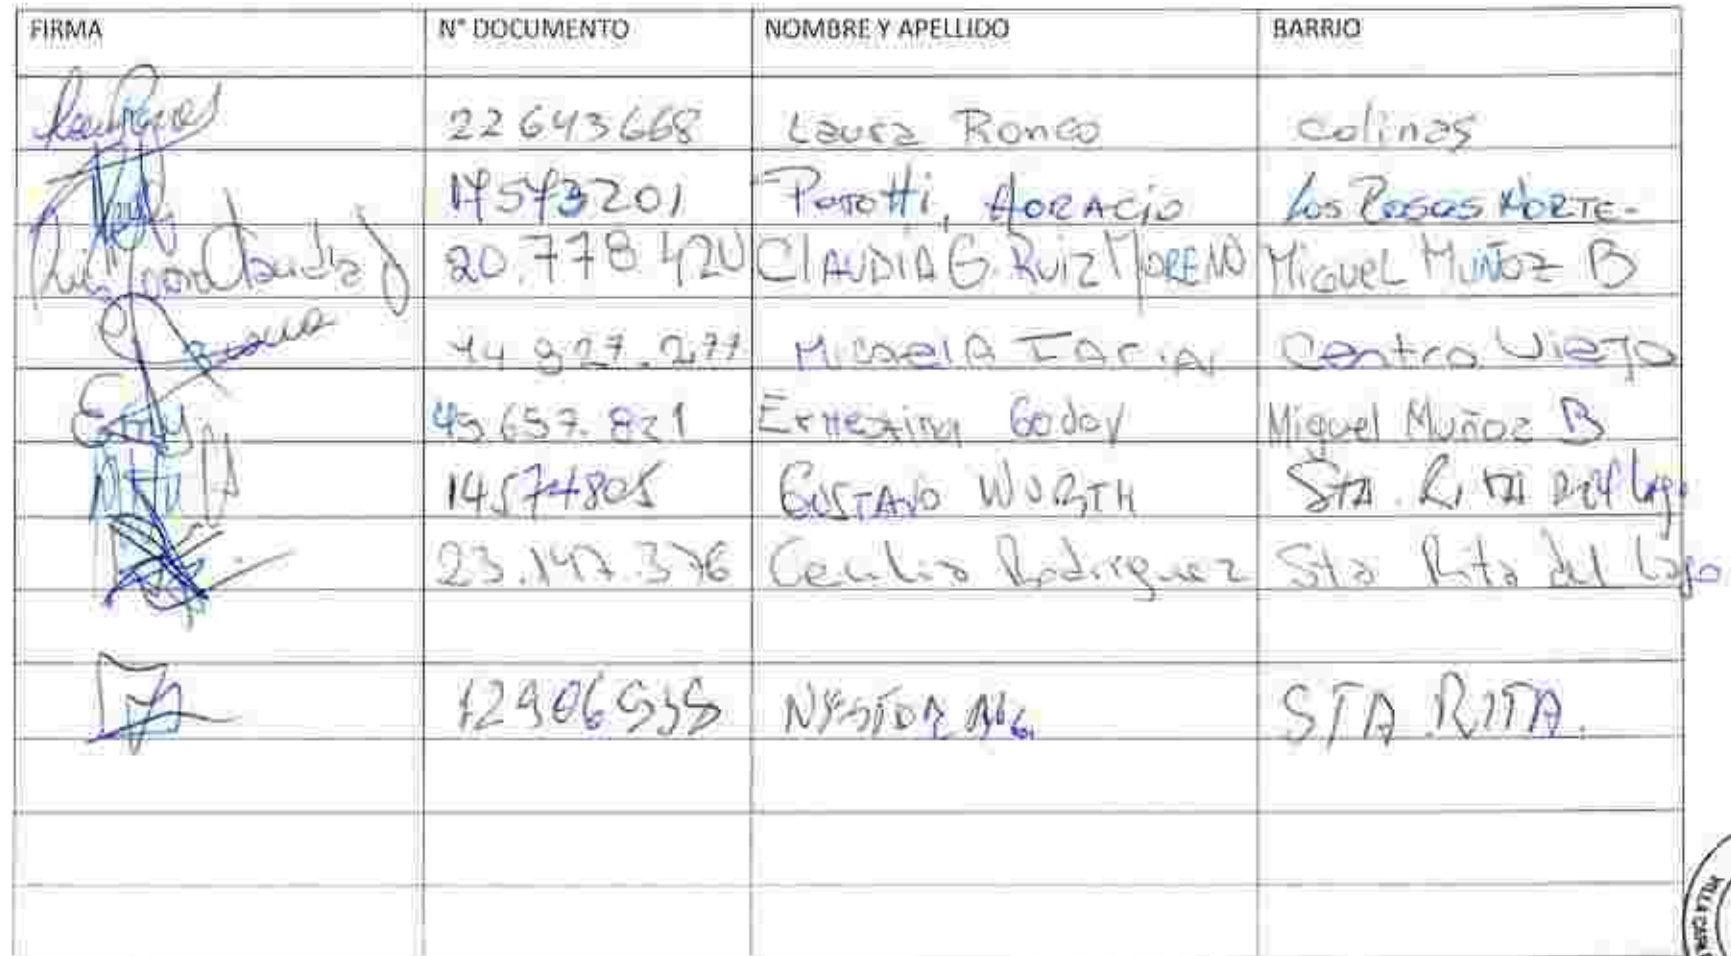 FIRMA N° DOCUMENTO NOMBRE Y APELLIDO BARRIO
22643668 Laura Ronco Colinas
17573201 Perotti, HORACIO Los Rosas NORTE-
Ruiz Moreno Claudia 20.778.420 CLAUDIA G. RUIZ MORENO MIGUEL MUÑOZ B
44.927.277 MICAELA Centro Viejo
45.657.821 Ernestina Godoy Miguel Muñoz B
14574805 GUSTAVO WURTH STA. RITA Del Lago
23.147.376 Cecilia Rodriguez Sta Rita del Lago
NESTOR STA. RITA.